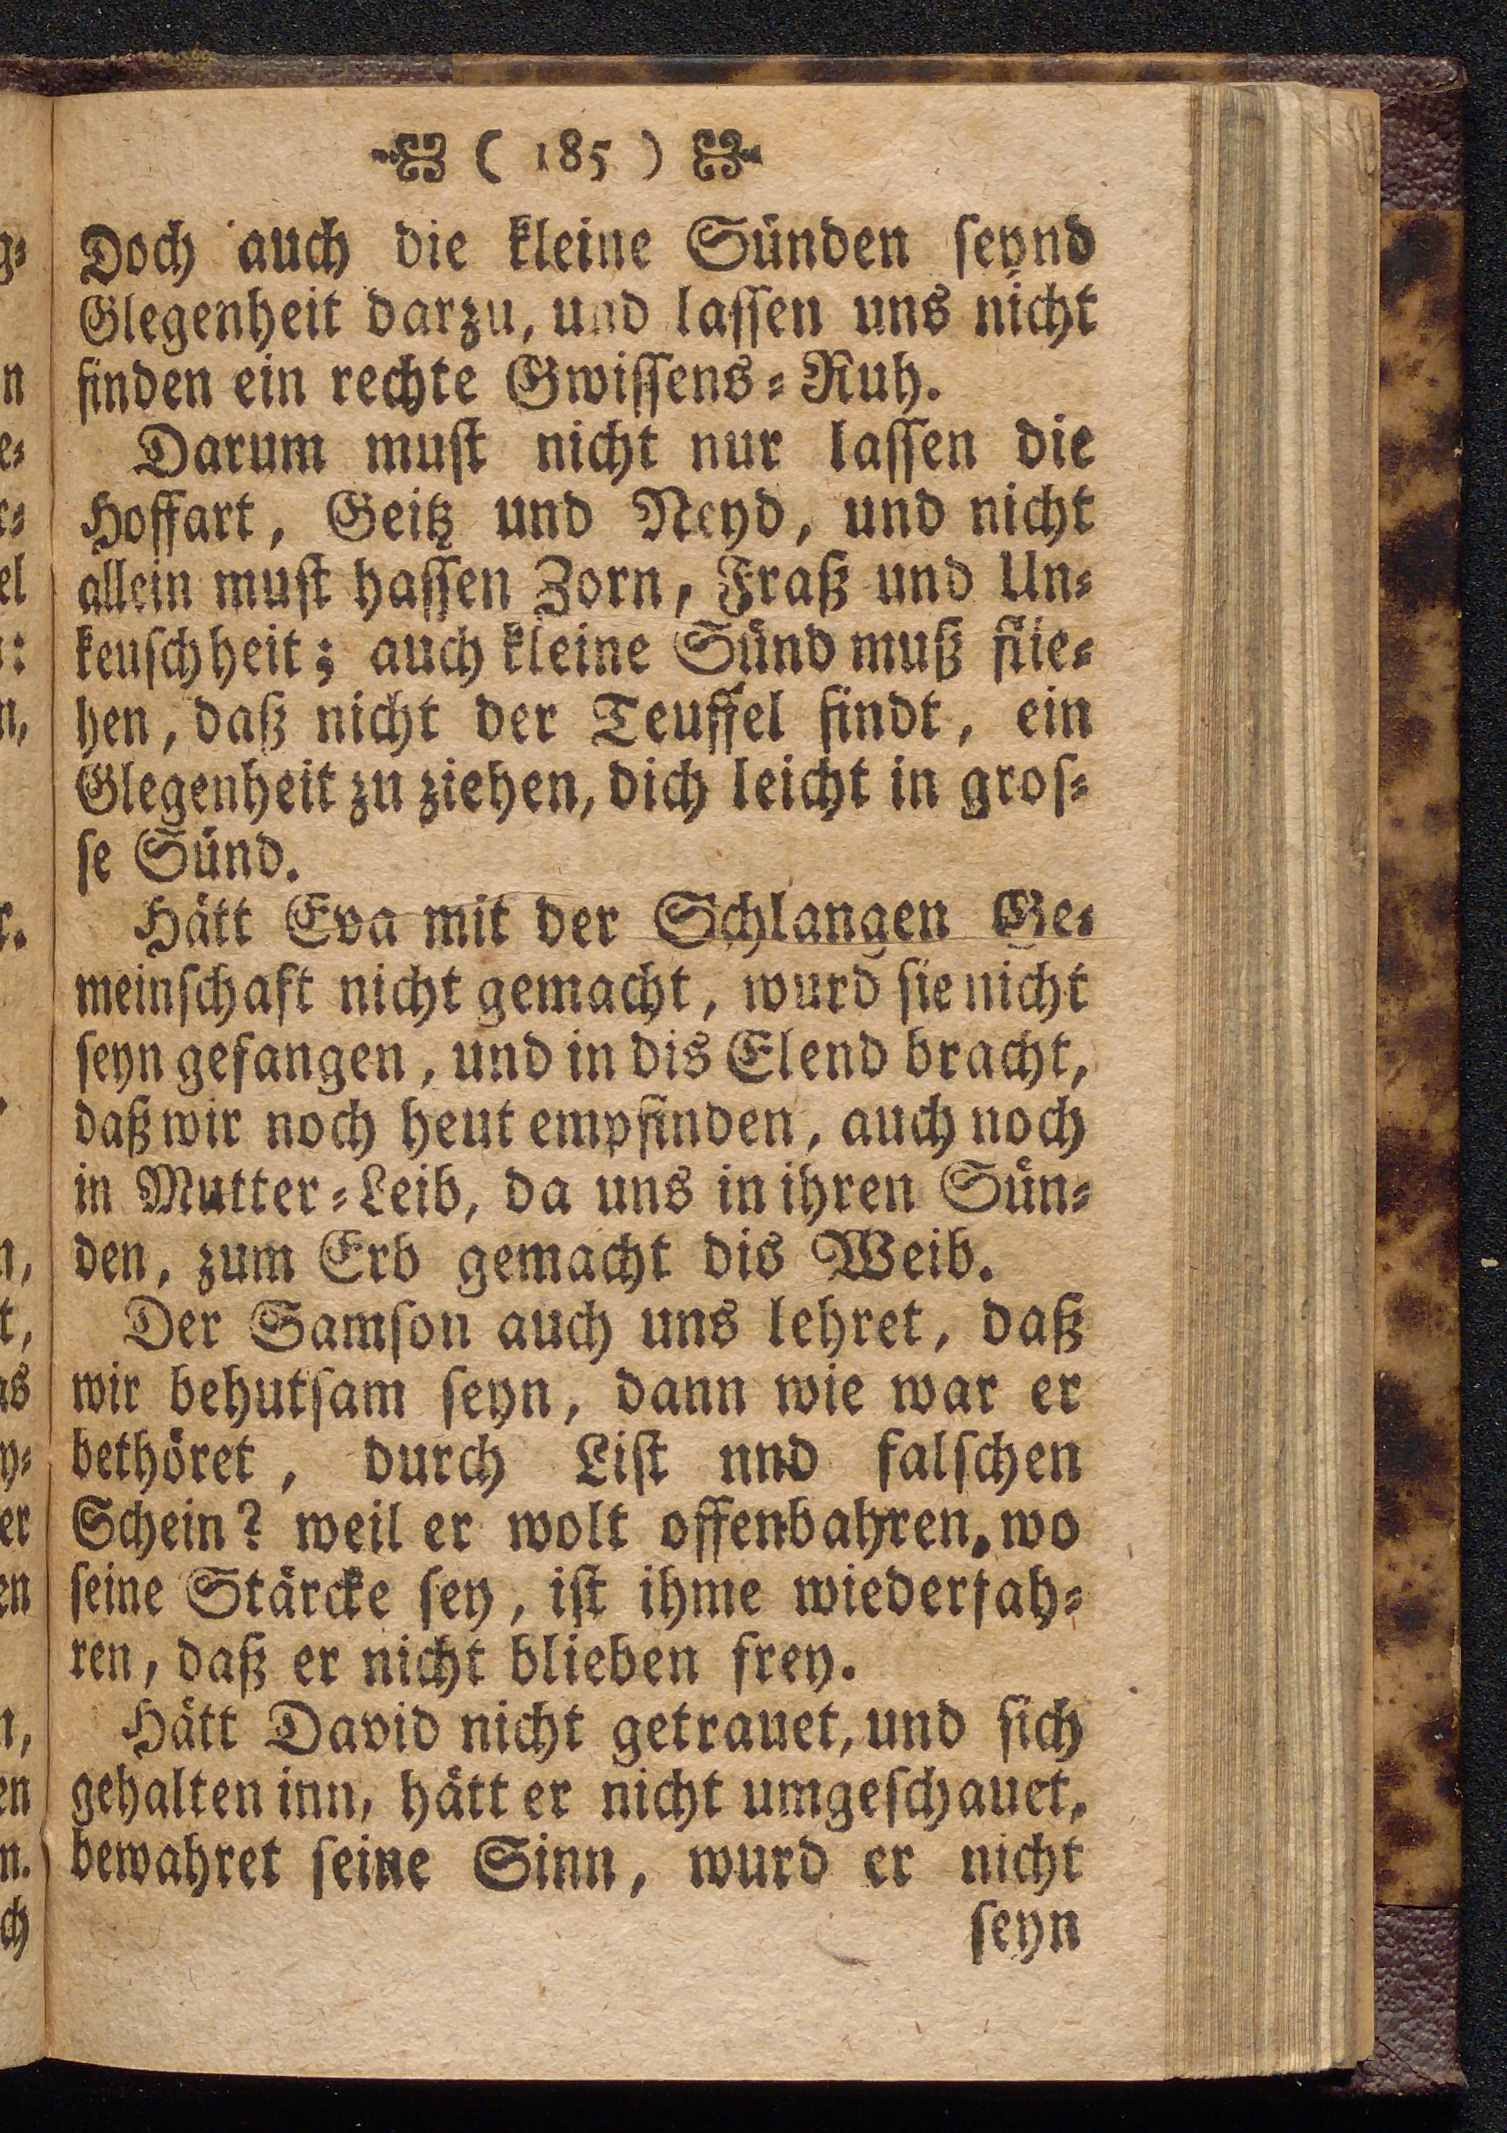 ( 185 )
Doch auch die kleine Sünden seynd
Glegenheit darzu, und lassen uns nicht
finden ein rechte Gwissens-Ruh.
Darum must nicht nur lassen die
Hoffart, Geitz und Neyd, und nicht
allein must hassen Zorn, Fraß und Un-
keuschheit; auch kleine Sünd muß flie-
hen, daß nicht der Teuffel findt, ein
Glegenheit zu ziehen, dich leicht in gros-
se Sünd.
Hätt Eva mit der Schlangen Ge-
meinschaft nicht gemacht, wurd sie nicht
seyn gefangen, und in dis Elend bracht,
daß wir noch heut empfinden, auch noch
in Mutter-Leib, da uns in ihren Sün-
den, zum Erb gemacht dis Weib.
Der Samson auch uns lehret, daß
wir behutsam seyn, dann wie war er
bethöret, durch List nnd falschen
Schein? weil er wolt offenbahren, wo
seine Stärcke sey, ist ihme wiederfah-
ren, daß er nicht blieben frey.
Hätt David nicht getrauet, und sich
gehalten inn, hätt er nicht umgeschauet,
bewahret seine Sinn, wurd er nicht
seyn